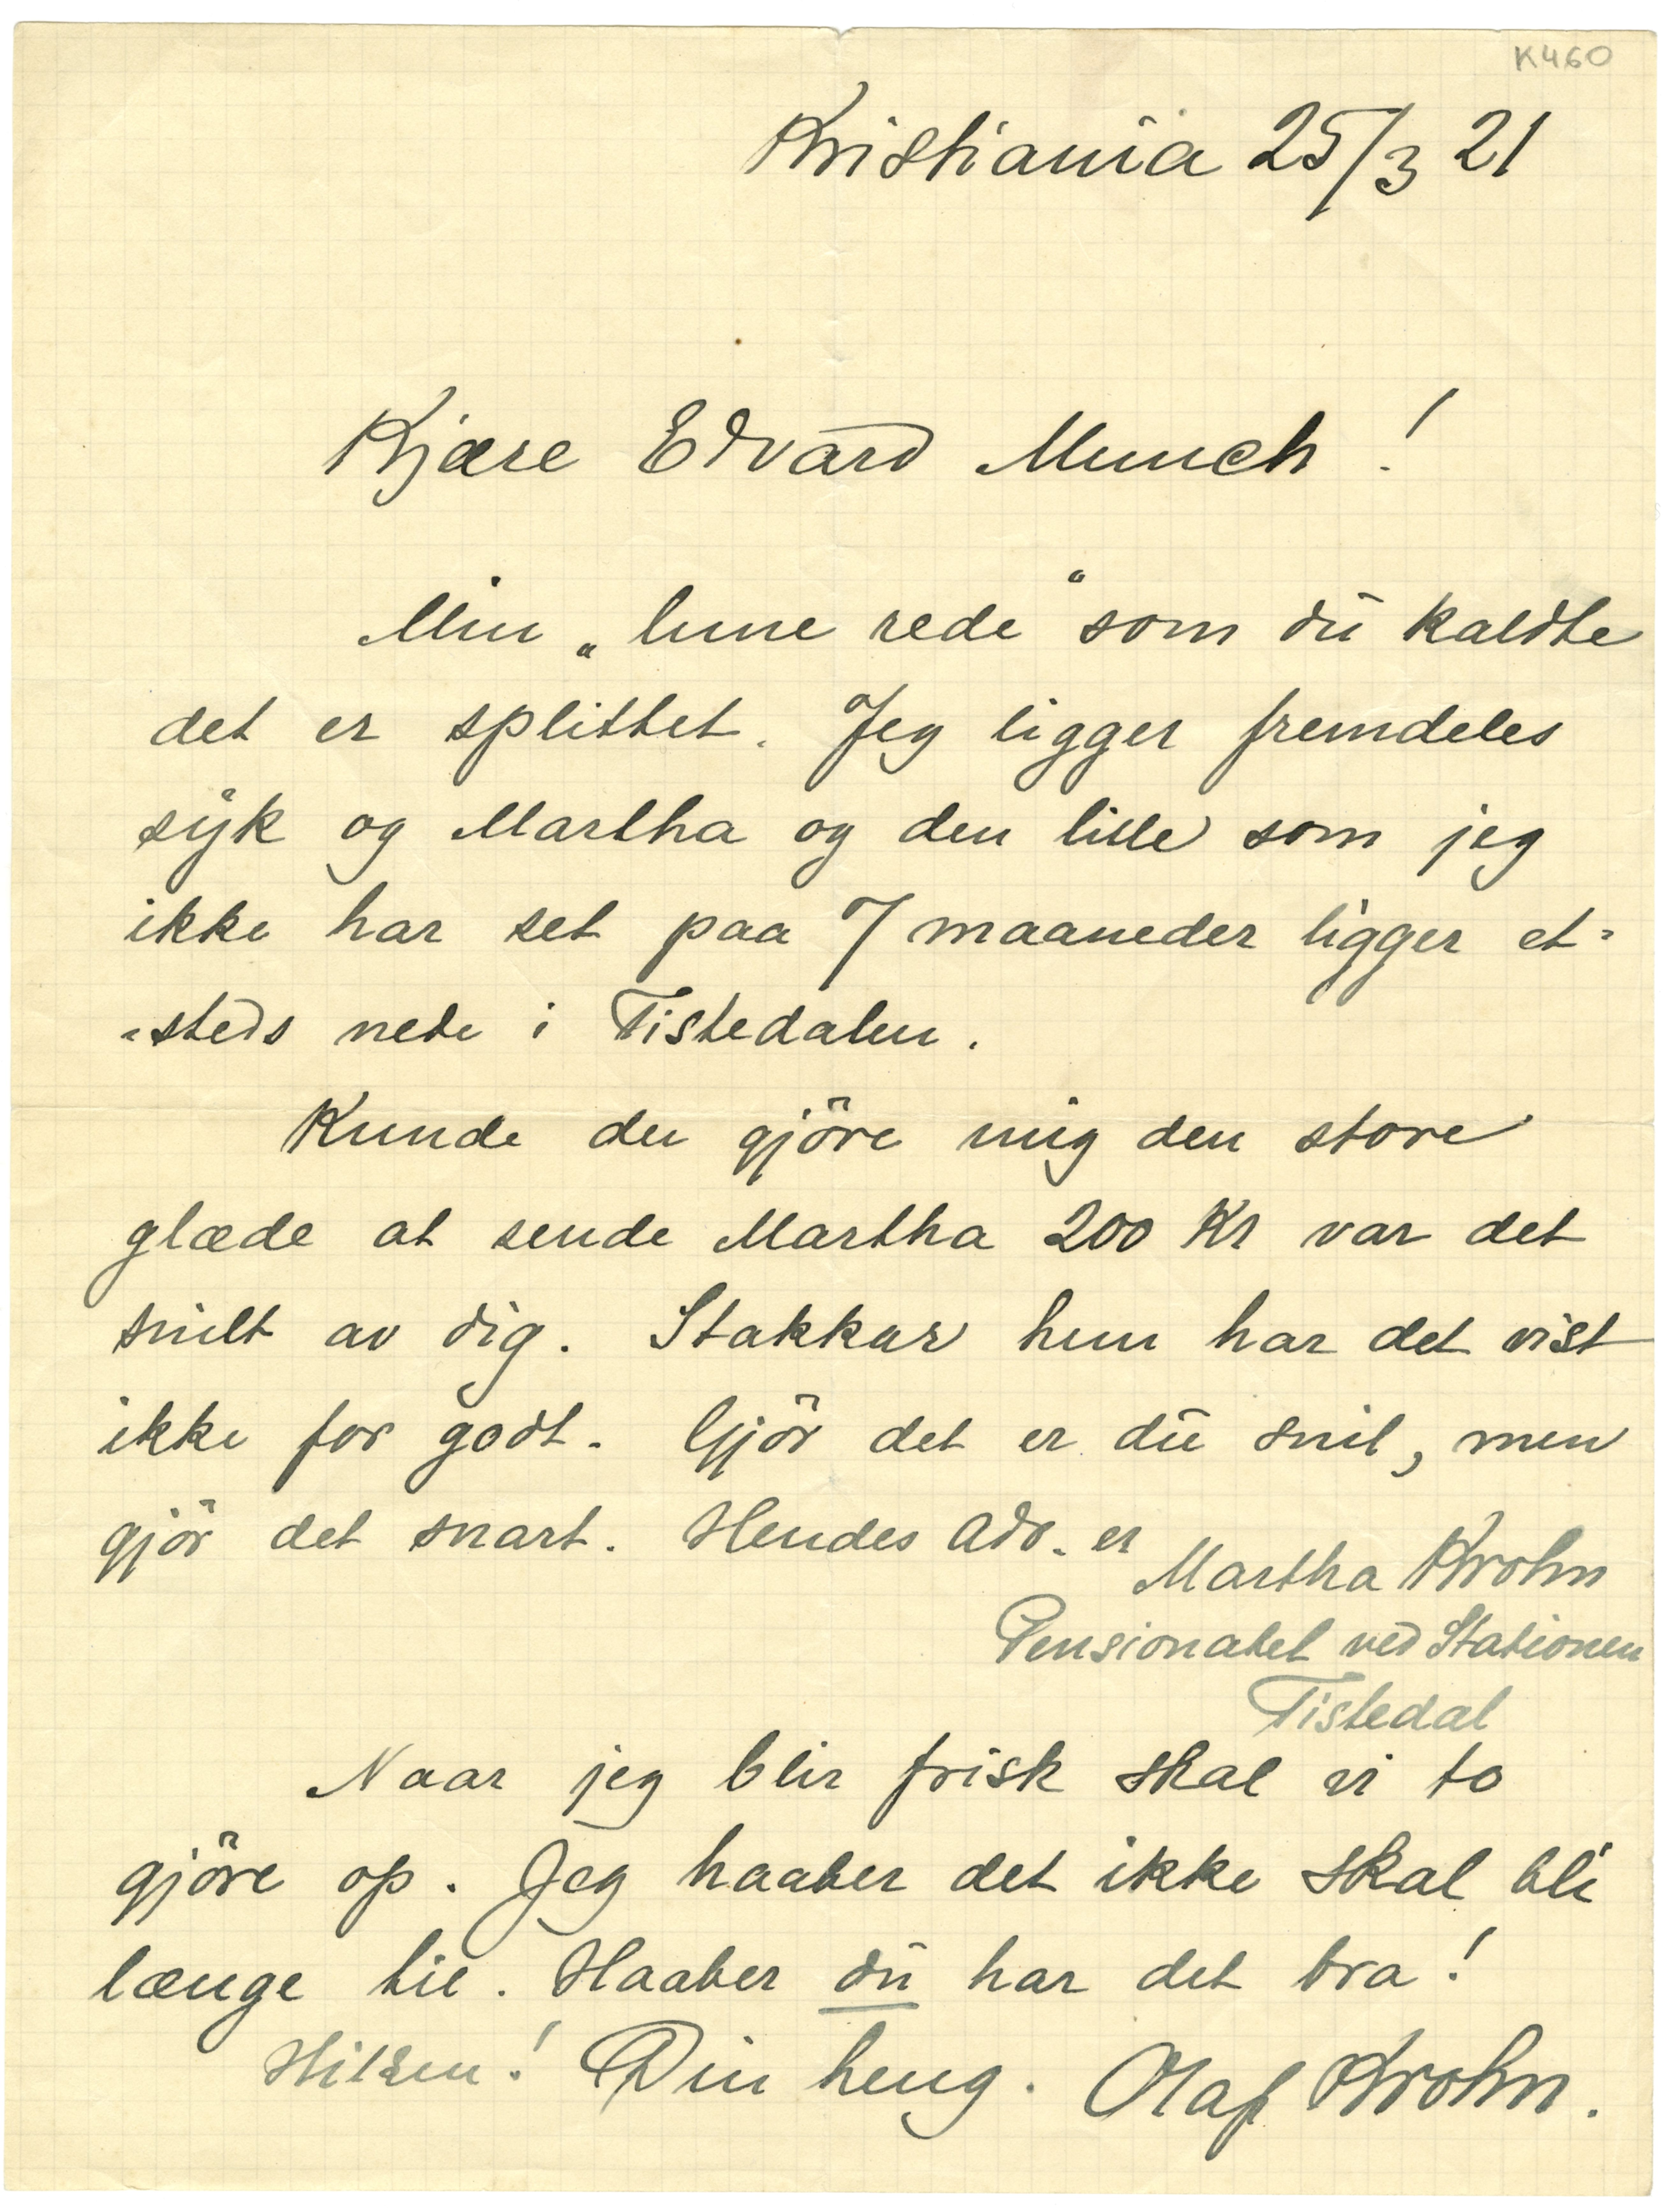 K460
Kristiania 25/3 21
Kjære Edvard Munch!
Min „lune rede“ som du kaldte
det er splittet. Jeg ligger fremdeles
syk og Martha og den lille som jeg
ikke har set paa 7 maaneder ligger et-
-steds nede i Tistedalen.
Kunde du gjöre mig den store
glæde at sende Martha 200 Kr var det
snilt av dig. Stakkar hun har det vist
ikke for godt. Gjör det er du snil, men
gjör det snart. Hendes Adr. er
Martha Krohn
Pensionatet ved Stationen
Tistedal
Naar jeg blir frisk skal vi to
gjöre op. Jeg haaber det ikke skal bli
længe til. Haaber du har det bra!
Hilsen! Din heng. Olaf Krohn.